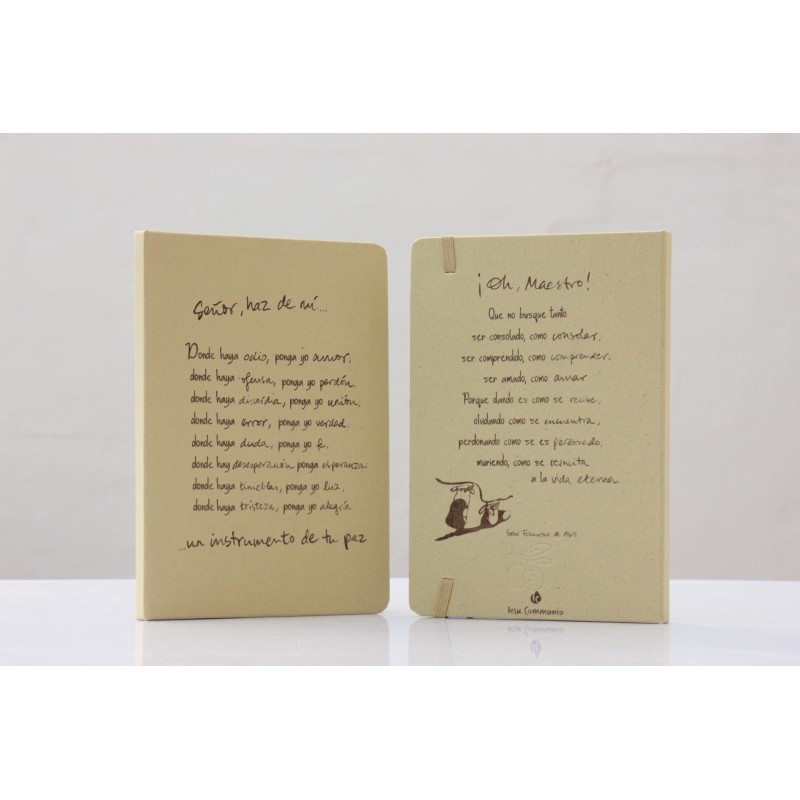 Señor, haz de mí...
Donde haya odio, ponga yo amor,
donde haya ofensa, ponga yo perdón,
donde haya discordia, ponga yo unión,
donde haya error, ponga yo verdad,
donde haya duda, ponga yo fe,
donde hay desesperación ponga esperanza,
donde haya tinieblas, ponga yo luz,
donde haya tristeza, ponga yo alegría
...un instrumento de tu paz
¡Oh, Maestro!
Que no busque tanto
ser consolado, como consolar,
ser comprendido, como comprender,
ser amado, como amar
Porque dando es como se recibe,
olvidando como se encuentra,
perdonando como se es perdonado,
muriendo, como se resucita
a la vida eterna
San Francisco de Asís
Iesu Communio